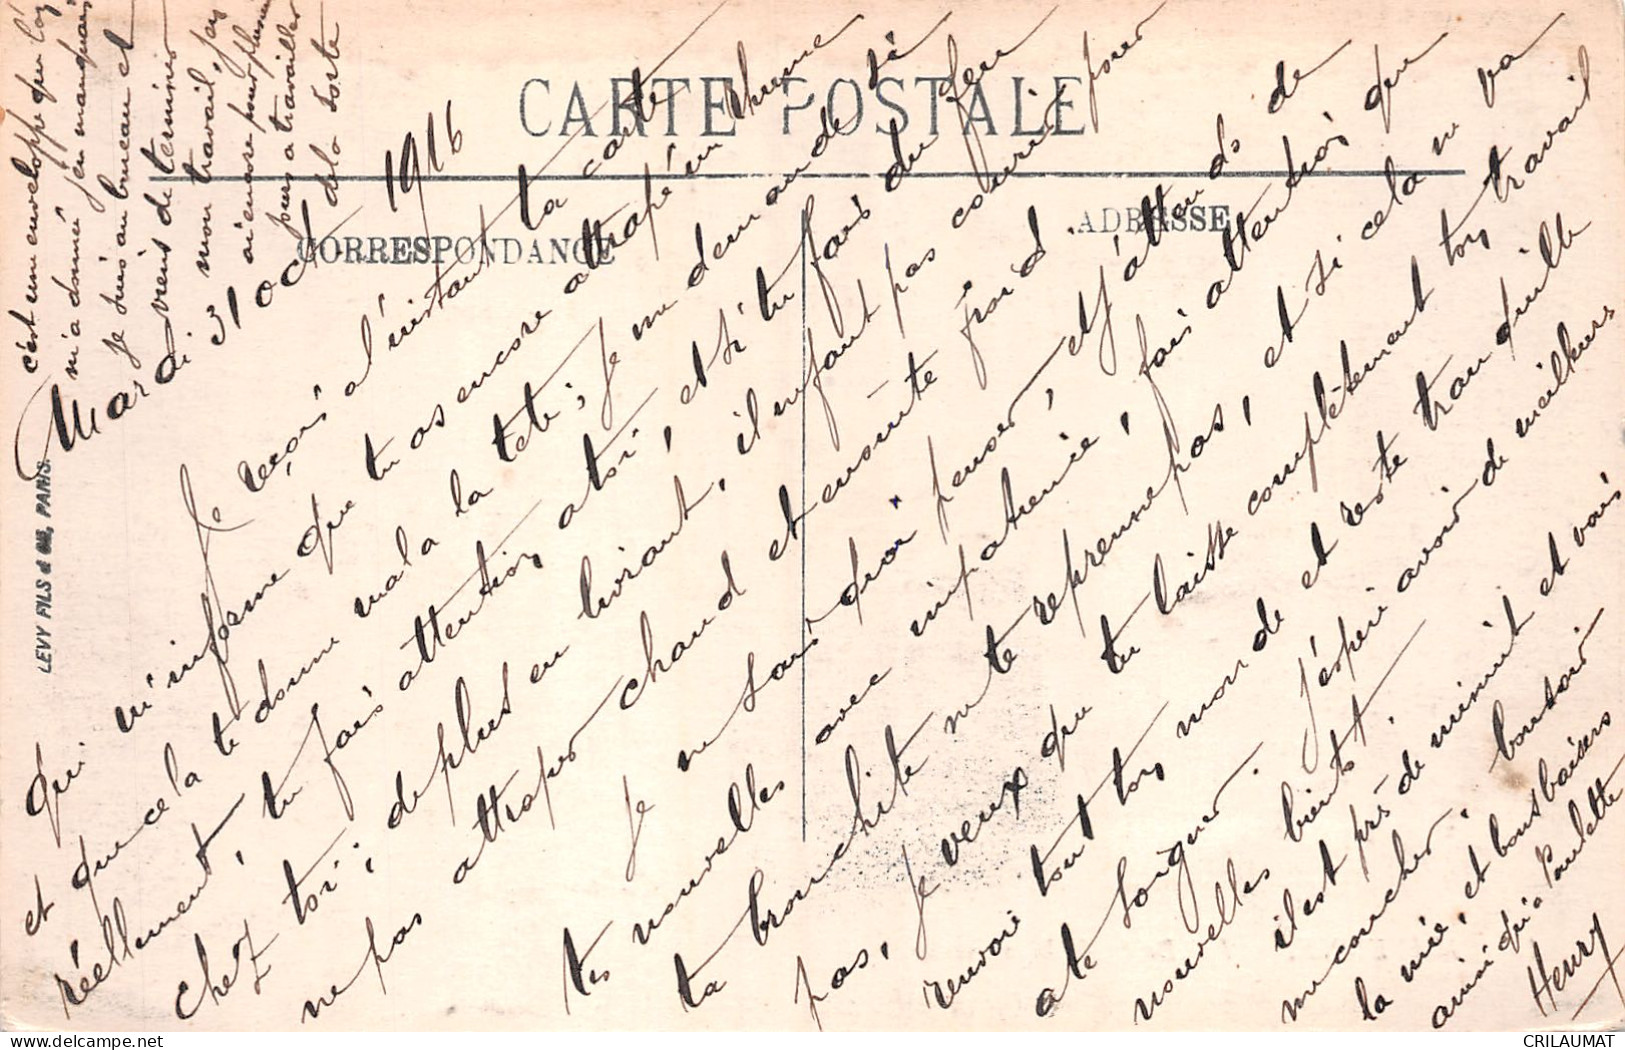 CARTE POSTALE
CORRESPONDANCE
ADRESSE
LEVY FILS & Cie, PARIS.
Mardi 31 oct 1916
Je reçois à l'instant ta carte
qui m'informe que tu as encore attrapé un rhume
et que cela te donne mal a la tete; je me demande si
réellement, tu fais attention a toi, et si tu fais du feu
chez toi; de plus en livrant, il ne faut pas courir pour
ne pas attraper chaud et ensuite froid.
Je ne sais quoi penser, et j'attends de
tes nouvelles avec impatience, fais attention que
ta bronchite ne te reprenne pas, et si cela ne va
pas, je veux que tu laisse complètement ton travail
renvoie tout ton monde et reste tranquille
a te soigner. J'espère avoir de meilleurs
nouvelles bientôt.
il est près de minuit et vais
me coucher, bonsoir
la mie, et bons baisers
ainsi qu'a Paulette
Henry
c'est une enveloppe que l'on
m'a donné j'en manquais
je suis au bureau et
viens de terminer
mon travail, j'en
ai encore pour plusieurs
jours a travailler
de la sorte
CRILAUMAT